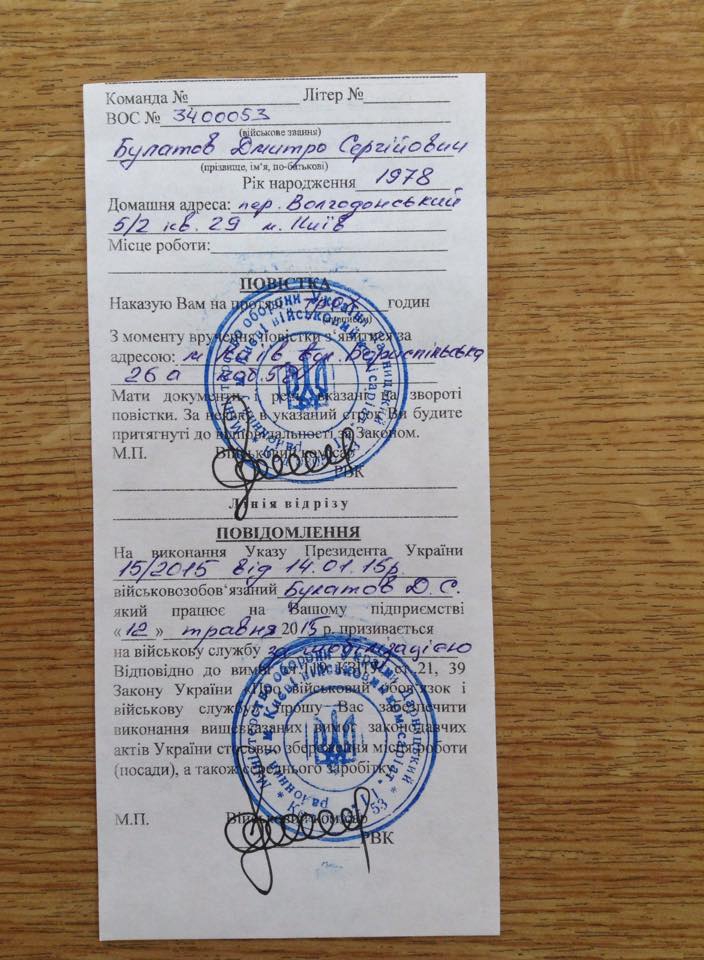 Команда №____________ Літер №__________
ВОС № 3400053
(військове звання)
Булатов Дмитро Сергійович
(прізвище, ім’я, по-батькові)
Рік народження 1978
Домашня адреса: пер. Волгодонський
5/2 кв. 29 м. Київ
Місце роботи:
ПОВІСТКА
Наказую Вам на протязі трох годин
З моменту вручення повістки з’явитися за
адресою: м. Київ вул. Бориспільська
26 а
Мати документи і речі вказані на звороті
повістки. За неявку в указаний строк Ви будите
притягнуті до відповідальності за Законом.
М.П. Військовий комісар
РВК
Лінія відрізу
ПОВІДОМЛЕННЯ
На виконання Указу Президента України
15/2015 від 14.01.15р.
військовозобов‘язаний Булатов Д.С.
який працює на Вашому підприємстві
«12» травня 2015 р. призивається
на військову службу за мобілізацією
Відповідно до вимог ст. 119 КЗПП, ст. 21, 39
Закону України «Про військовий обов’язок і
військову службу» прошу Вас забезпечити
виконання вищевказаних вимог законодавчих
актів України стосовно збереження місця роботи
(посади), а також середнього заробітку.
М.П. Військовий комісар
РВК